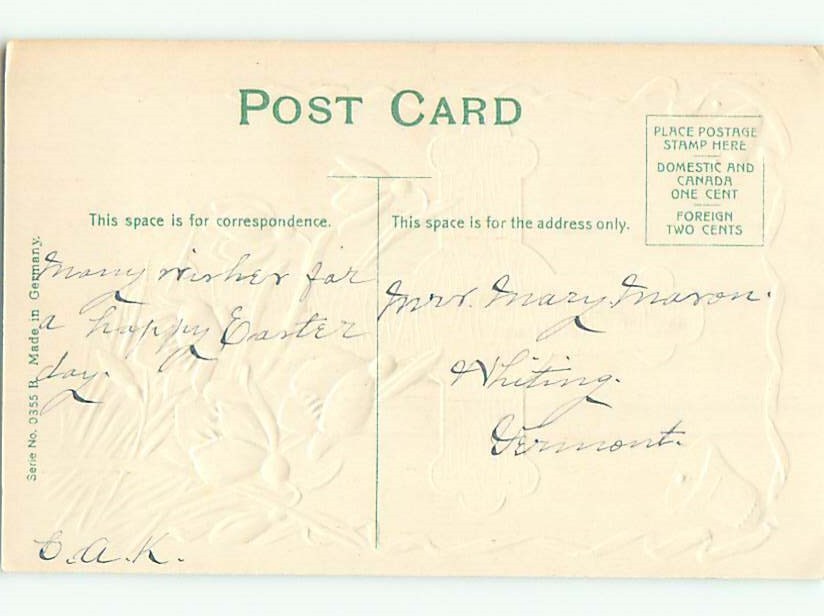 POST CARD
PLACE POSTAGE
STAMP HERE
DOMESTIC AND
CANADA
ONE CENT
FOREIGN
TWO CENTS
This space is for correspondence.
This space is for the address only.
Many wishes for
a happy Easter
day.
C.A.K.
Mrs. Mary Mason.
Whiting.
Vermont.
Serie No. 0355 B. Made in Germany.